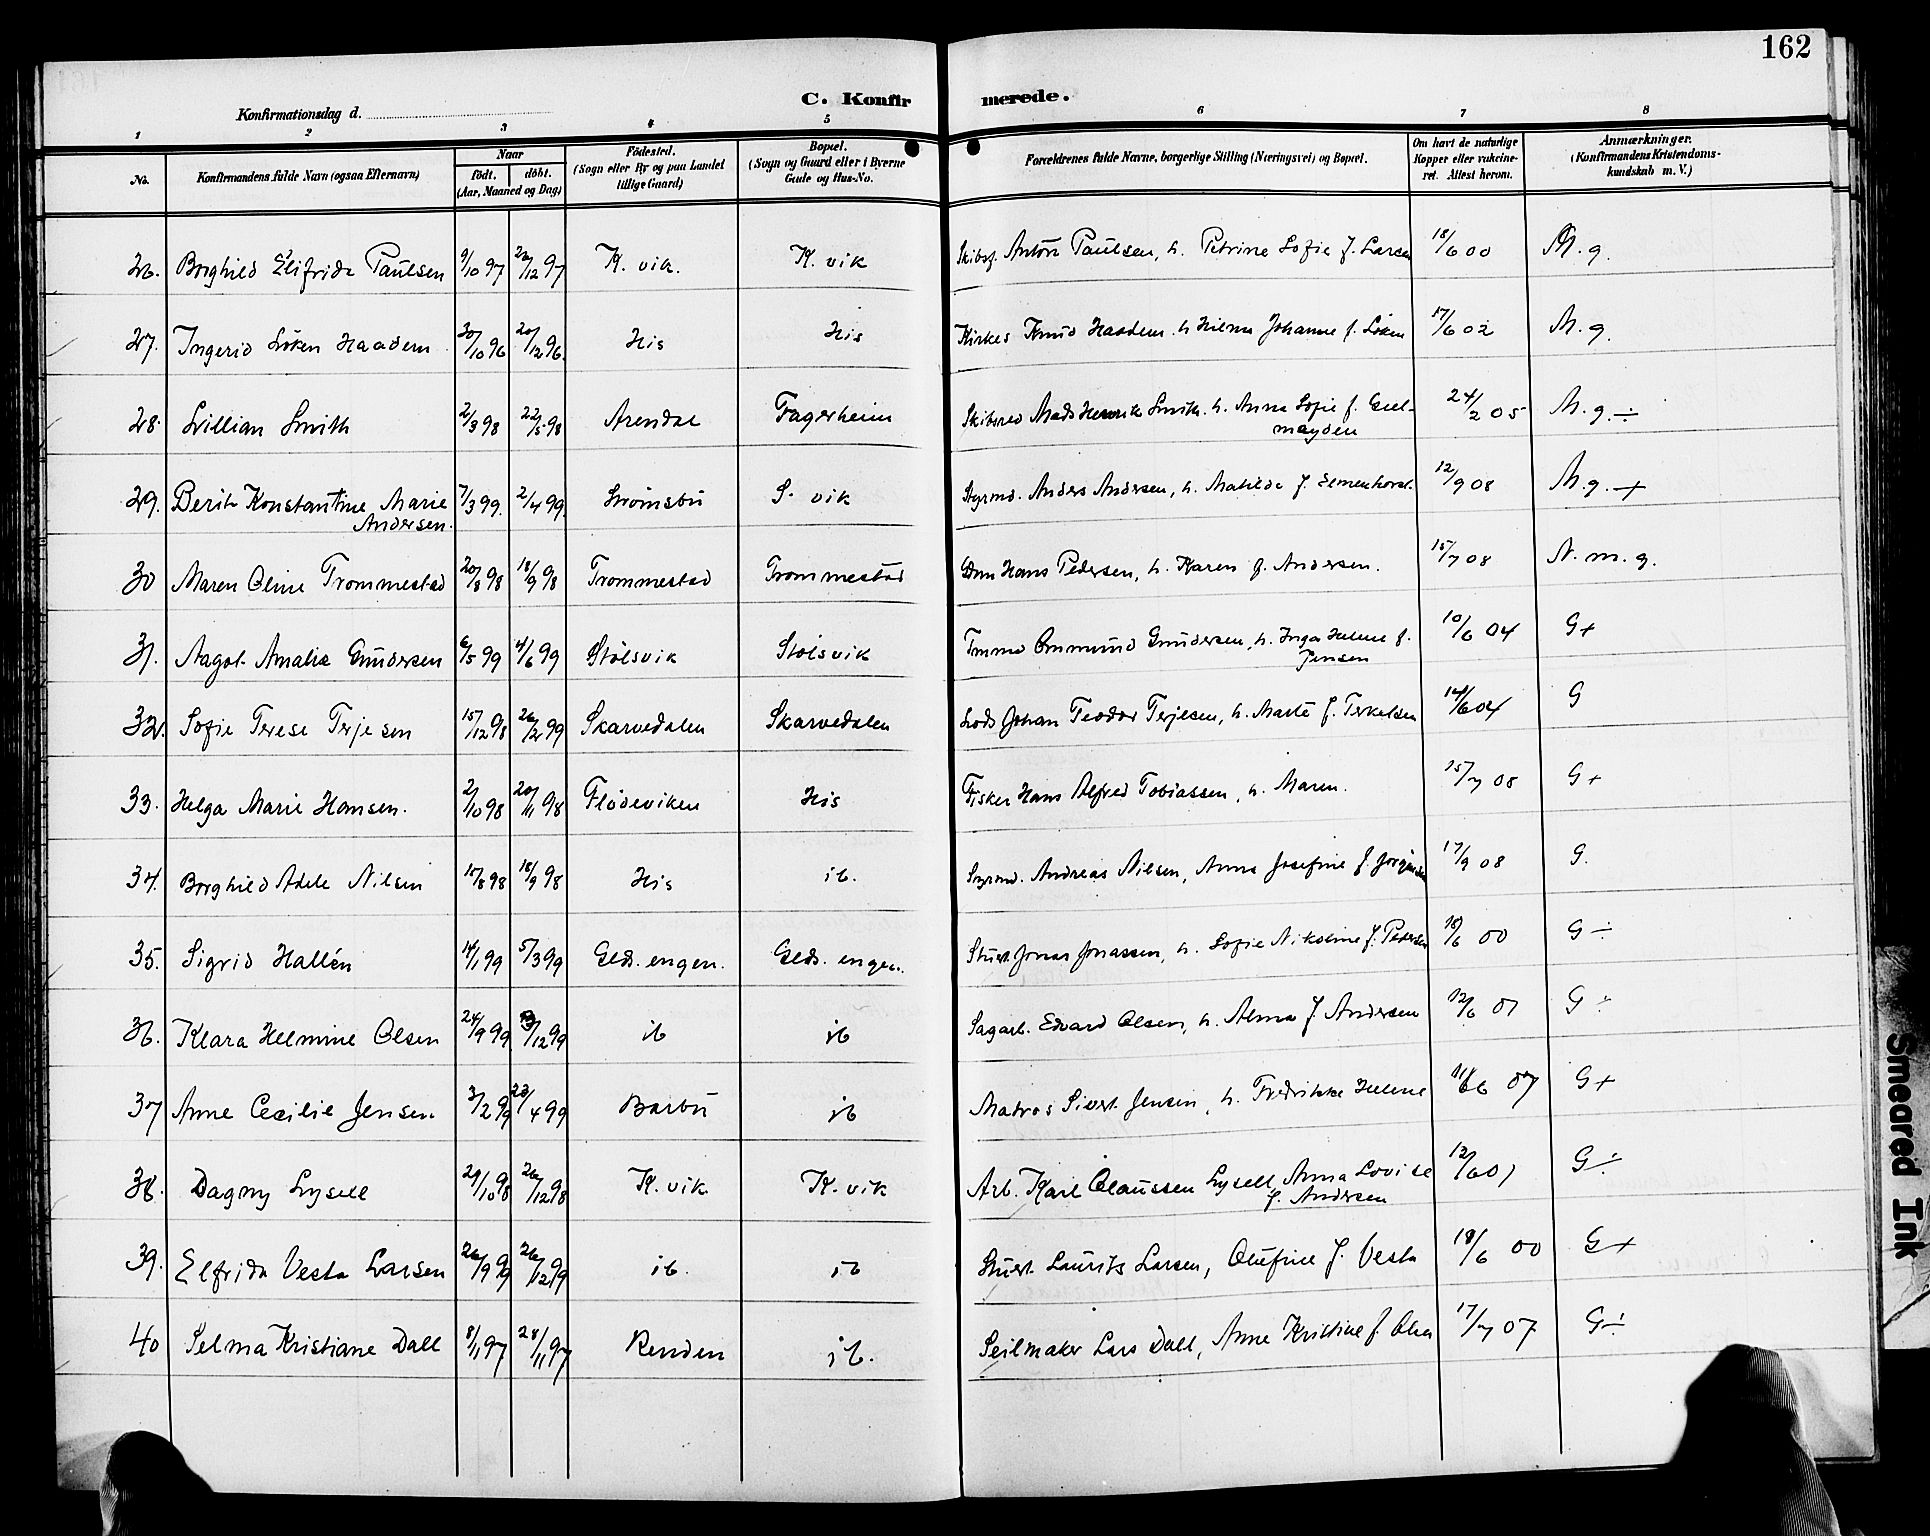 162
C. Konfirmerede.
Konfirmationsdag d.
1 2 3 4 5 6 7 8
No.
Konfirmandens fulde Navn (ogsaa Efternavn)
Naar
født. döbt.
(Aar, Maaned og Dag)
Födested.
(Sogn eller By og paa Landet
tillige Gaard)
Bopæl.
(Sogn og Gaard eller i Byerne
Gade og Hus-No.
Forældrenes fulde Navne, borgerlige Stilling (Næringsvei) og Bopæl.
Om havt de naturlige
Kopper eller vakcine-
ret. Attest herom.
Anmærkninger.
(Konfirmandens Kristendoms-
kundskab m. V.)
26. Borghild Elifrida Paulsen 9/10 97 26/12 97 K. vik. K. vik Skibsf. Anton Paulsen, h. Petrine Sofie f. Larsen 18/6 00 M. g.
27. Ingerid Löken Haadem 30/10 96 20/12 96. His His Kirkes Knud Haadem h Hilma Johanne f. Löken 17/6 02 M. g.
28. Lillian Smith 2/3 98 22/5 98 Arendal Fagerheim Skibsred Mads Henrik Smith. h. Anna Sofie f. Giel-
mayden 24/2 05 M. g. ÷
29. Berit Konstantine Marie
Andersen. 7/3 99. 2/4 99. Strömsbu S. vik Styrmd. Anders Andersen, h. Matilde f. Elmenhorst. 12/9 08 M. g. +
30 Maren Oline Trommestad 20/8 98 18/9 98 Trommestad Trommestad Gbm Hans Pedersen, h. Karen f. Andersen. 15/7 08 N. m. g.
31. Aagot Amalie Gundersen 6/5 99 4/6 99 Stölsvik Stölsvik Tmmd Ommund Gundersen, h. Inga Helene f.
Jensen 10/6 04 G +
32. Sofie Terese Terjesen 15/12 98 26/2 99 Skarvedalen Skarvedalen Lods Johan Teodor Terjesen, h. Marte f. Terkelsen 14/6 04 G
33. Helga Marie Hansen. 2/10 98 20/11 98 Flödeviken His Fisker Hans Alfred Tobiassen, h. Maren. 15/7 08 G +
34. Borghild Adele Nilsen 15/8 98 18/9 98 His ib. Styrmd. Andreas Nilsen, Anna Josefine f. Jörgensen 17/9 08 G.
35. Sigrid Hallén 14/1 99 5/3 99 Geds. engen. Geds. engen. Stuert Jonas Jonassen, h. Sofie Nikoline f. Pedersen 18/6 00 G ÷
36. Klara Helmine Olsen 24/9 99 /12 99 ib ib Sagarb. Edvard Olsen, h. Alma f Andersen 12/6 01 G ÷
37 Anne Cecilie Jensen 3/2 99 23/4 99 Barbu ib Matros Sivert Jensen, h. Fredrikke Helene 11/6 07 G +
38. Dagny Lysell 29/10 98 26/12 98 K. vik K. vik Arb. Karl Claussen Lysell, Anna Lovise
f. Andersen 12/6 01 G ÷
39. Elfrida Vesta Larsen 26/9 99 26/12 99 ib. ib Stuert Laurits Larsen, Olufine f. Vesta 18/6 00 G +
40 Selma Kristiane Dall 8/1 97 28/11 97 Renden ib. Seilmaker Lars Dall, Anne Kristine f. Olsen 17/7 07 G ÷
Smeared Ink